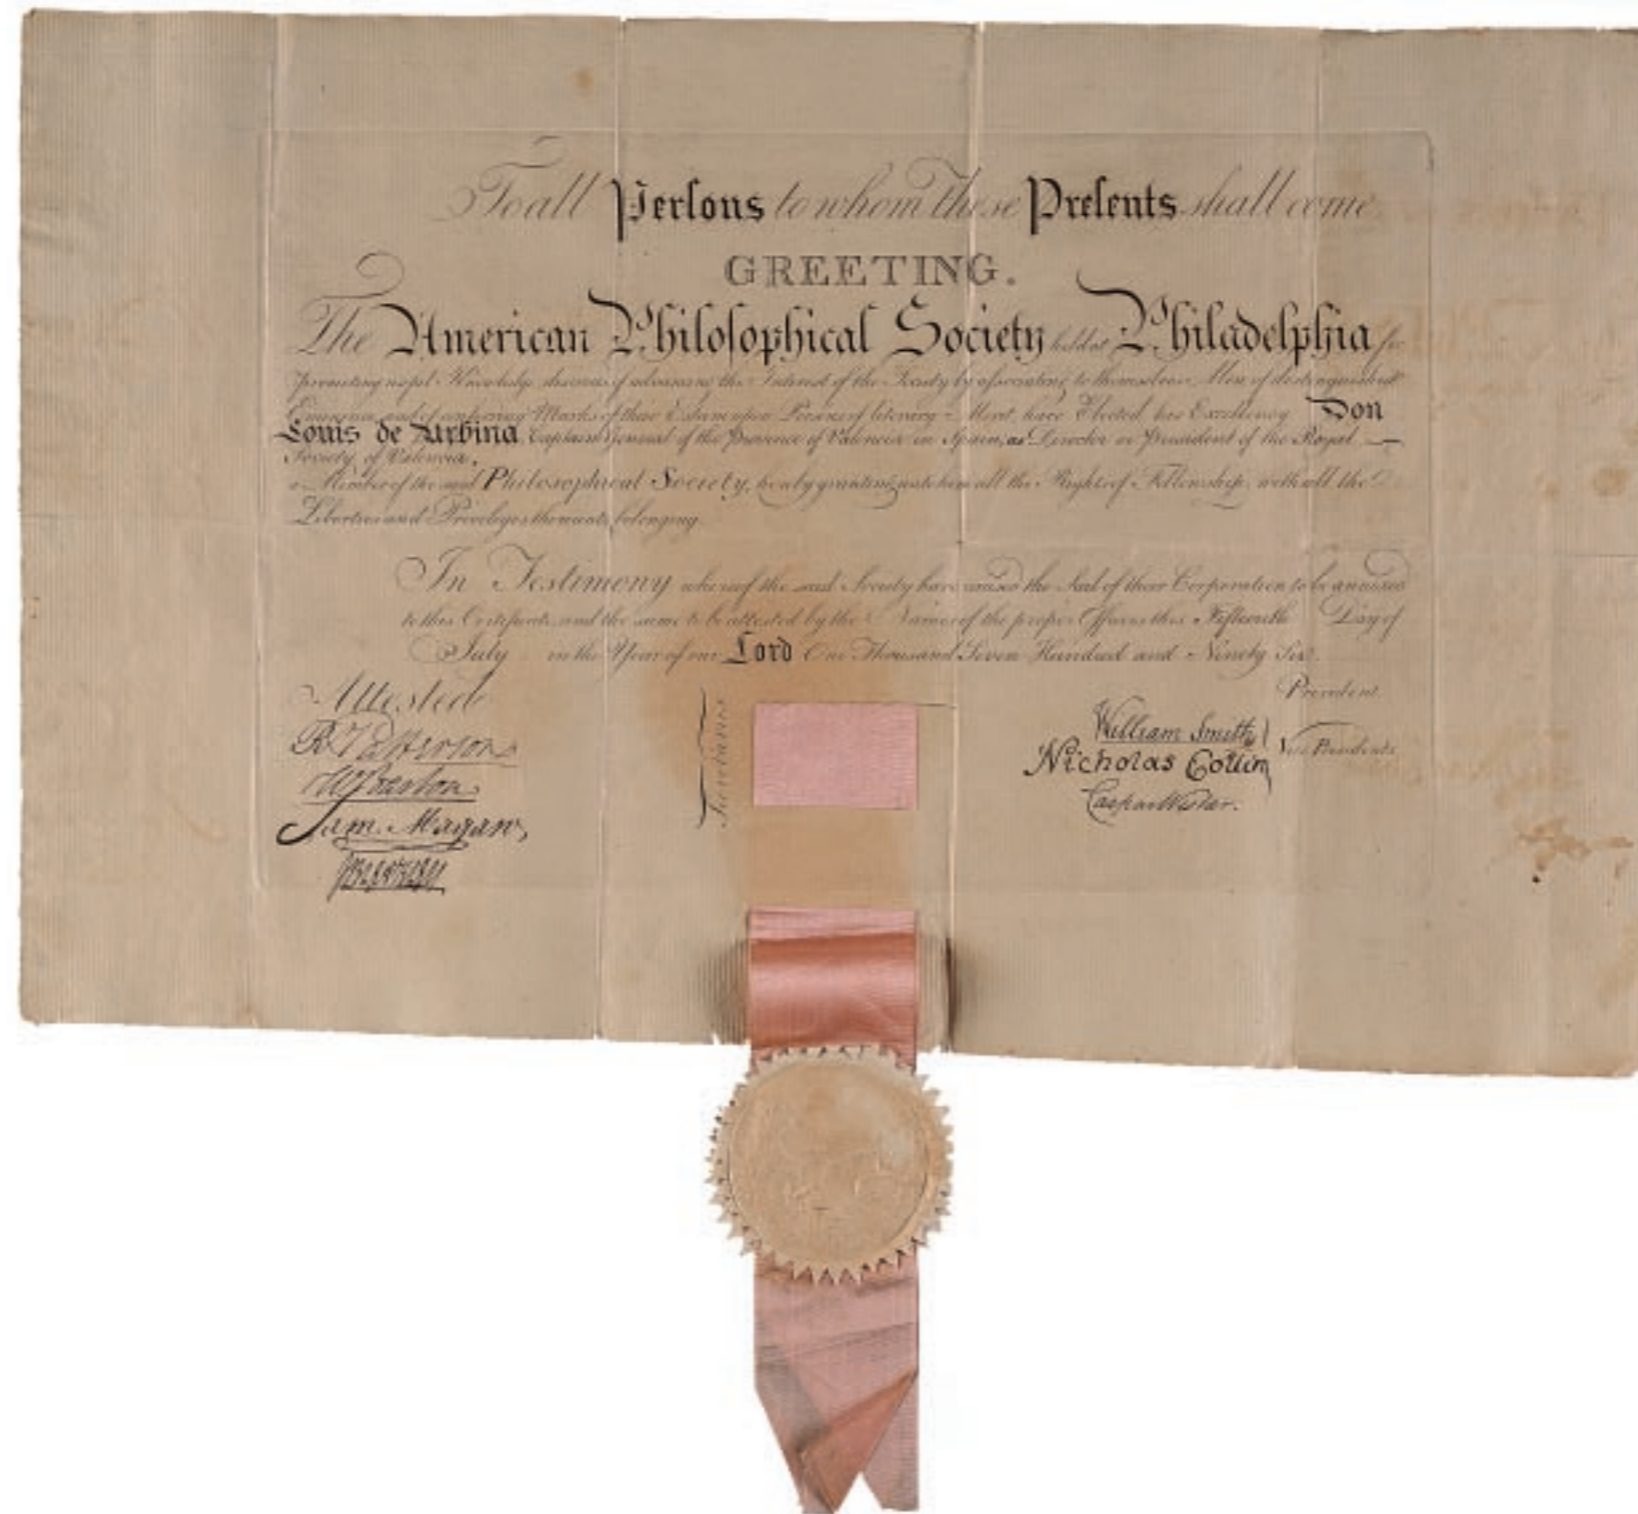 To all Persons to whom these Presents shall come
GREETING.
The American Philosophical Society held at Philadelphia for
promoting useful Knowledge, desirous of advancing the Interest of the Society by associating to themselves Men of distinguished
Eminence and of conferring Marks of their Esteem upon Persons of literary Merit, have Elected his Excellency Don
Louis de Urbina, Captain General of the Province of Valencia in Spain, as Director or President of the Royal
Society of Valencia,
a Member of the said Philosophical Society, hereby granting unto him all the Right of Fellowship, with all the
Liberties and Privileges thereunto belonging.
In Testimony whereof the said Society have caused the Seal of their Corporation to be annexed
to this Certificate, and the same to be attested by the Names of the proper Officers this Fifteenth Day of
July in the Year of our Lord One Thousand Seven Hundred and Ninety Six.
Attested
President.
R. Patterson
William Smith
Nicholas Collin
Vice Presidents
Caspar Wistar.
Sam. Magaw
Secretaries